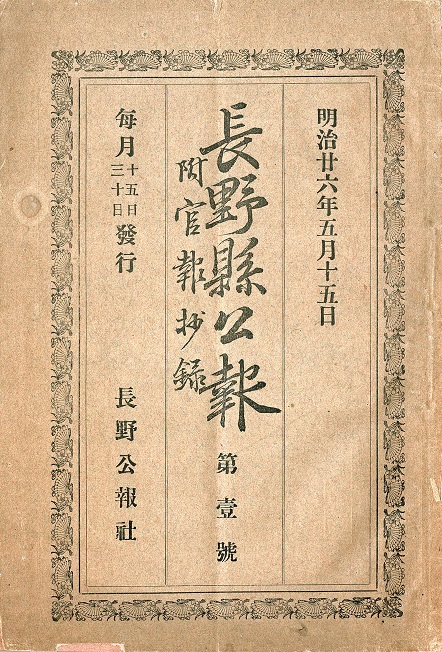 明治廿六年五月十五日
長野縣公報 第壹號
附官報抄録
每月十五日三十日發行 長野公報社